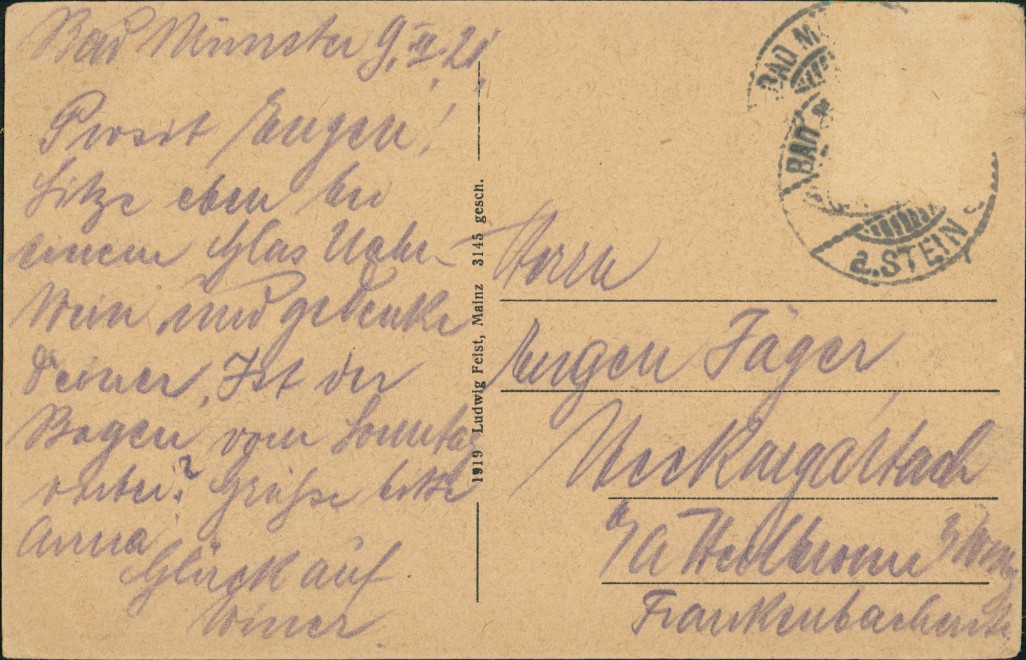 Bad Münster 9. II. 21
Prosit Eugen!
Sitze eben bei
einem Glas Nahe-
Wein und gedenke
Deiner, Ist der
Bogen vom Sonntag
vorbei? Grüße bitte
Anna
Glück auf
1919 Ludwig Feist, Mainz 3145 gesch.
BAD M
BAD M
a. STEIN
Herrn
Eugen Jäger
Neckargartach
b/A Heilbronn
Frankenbacherstr